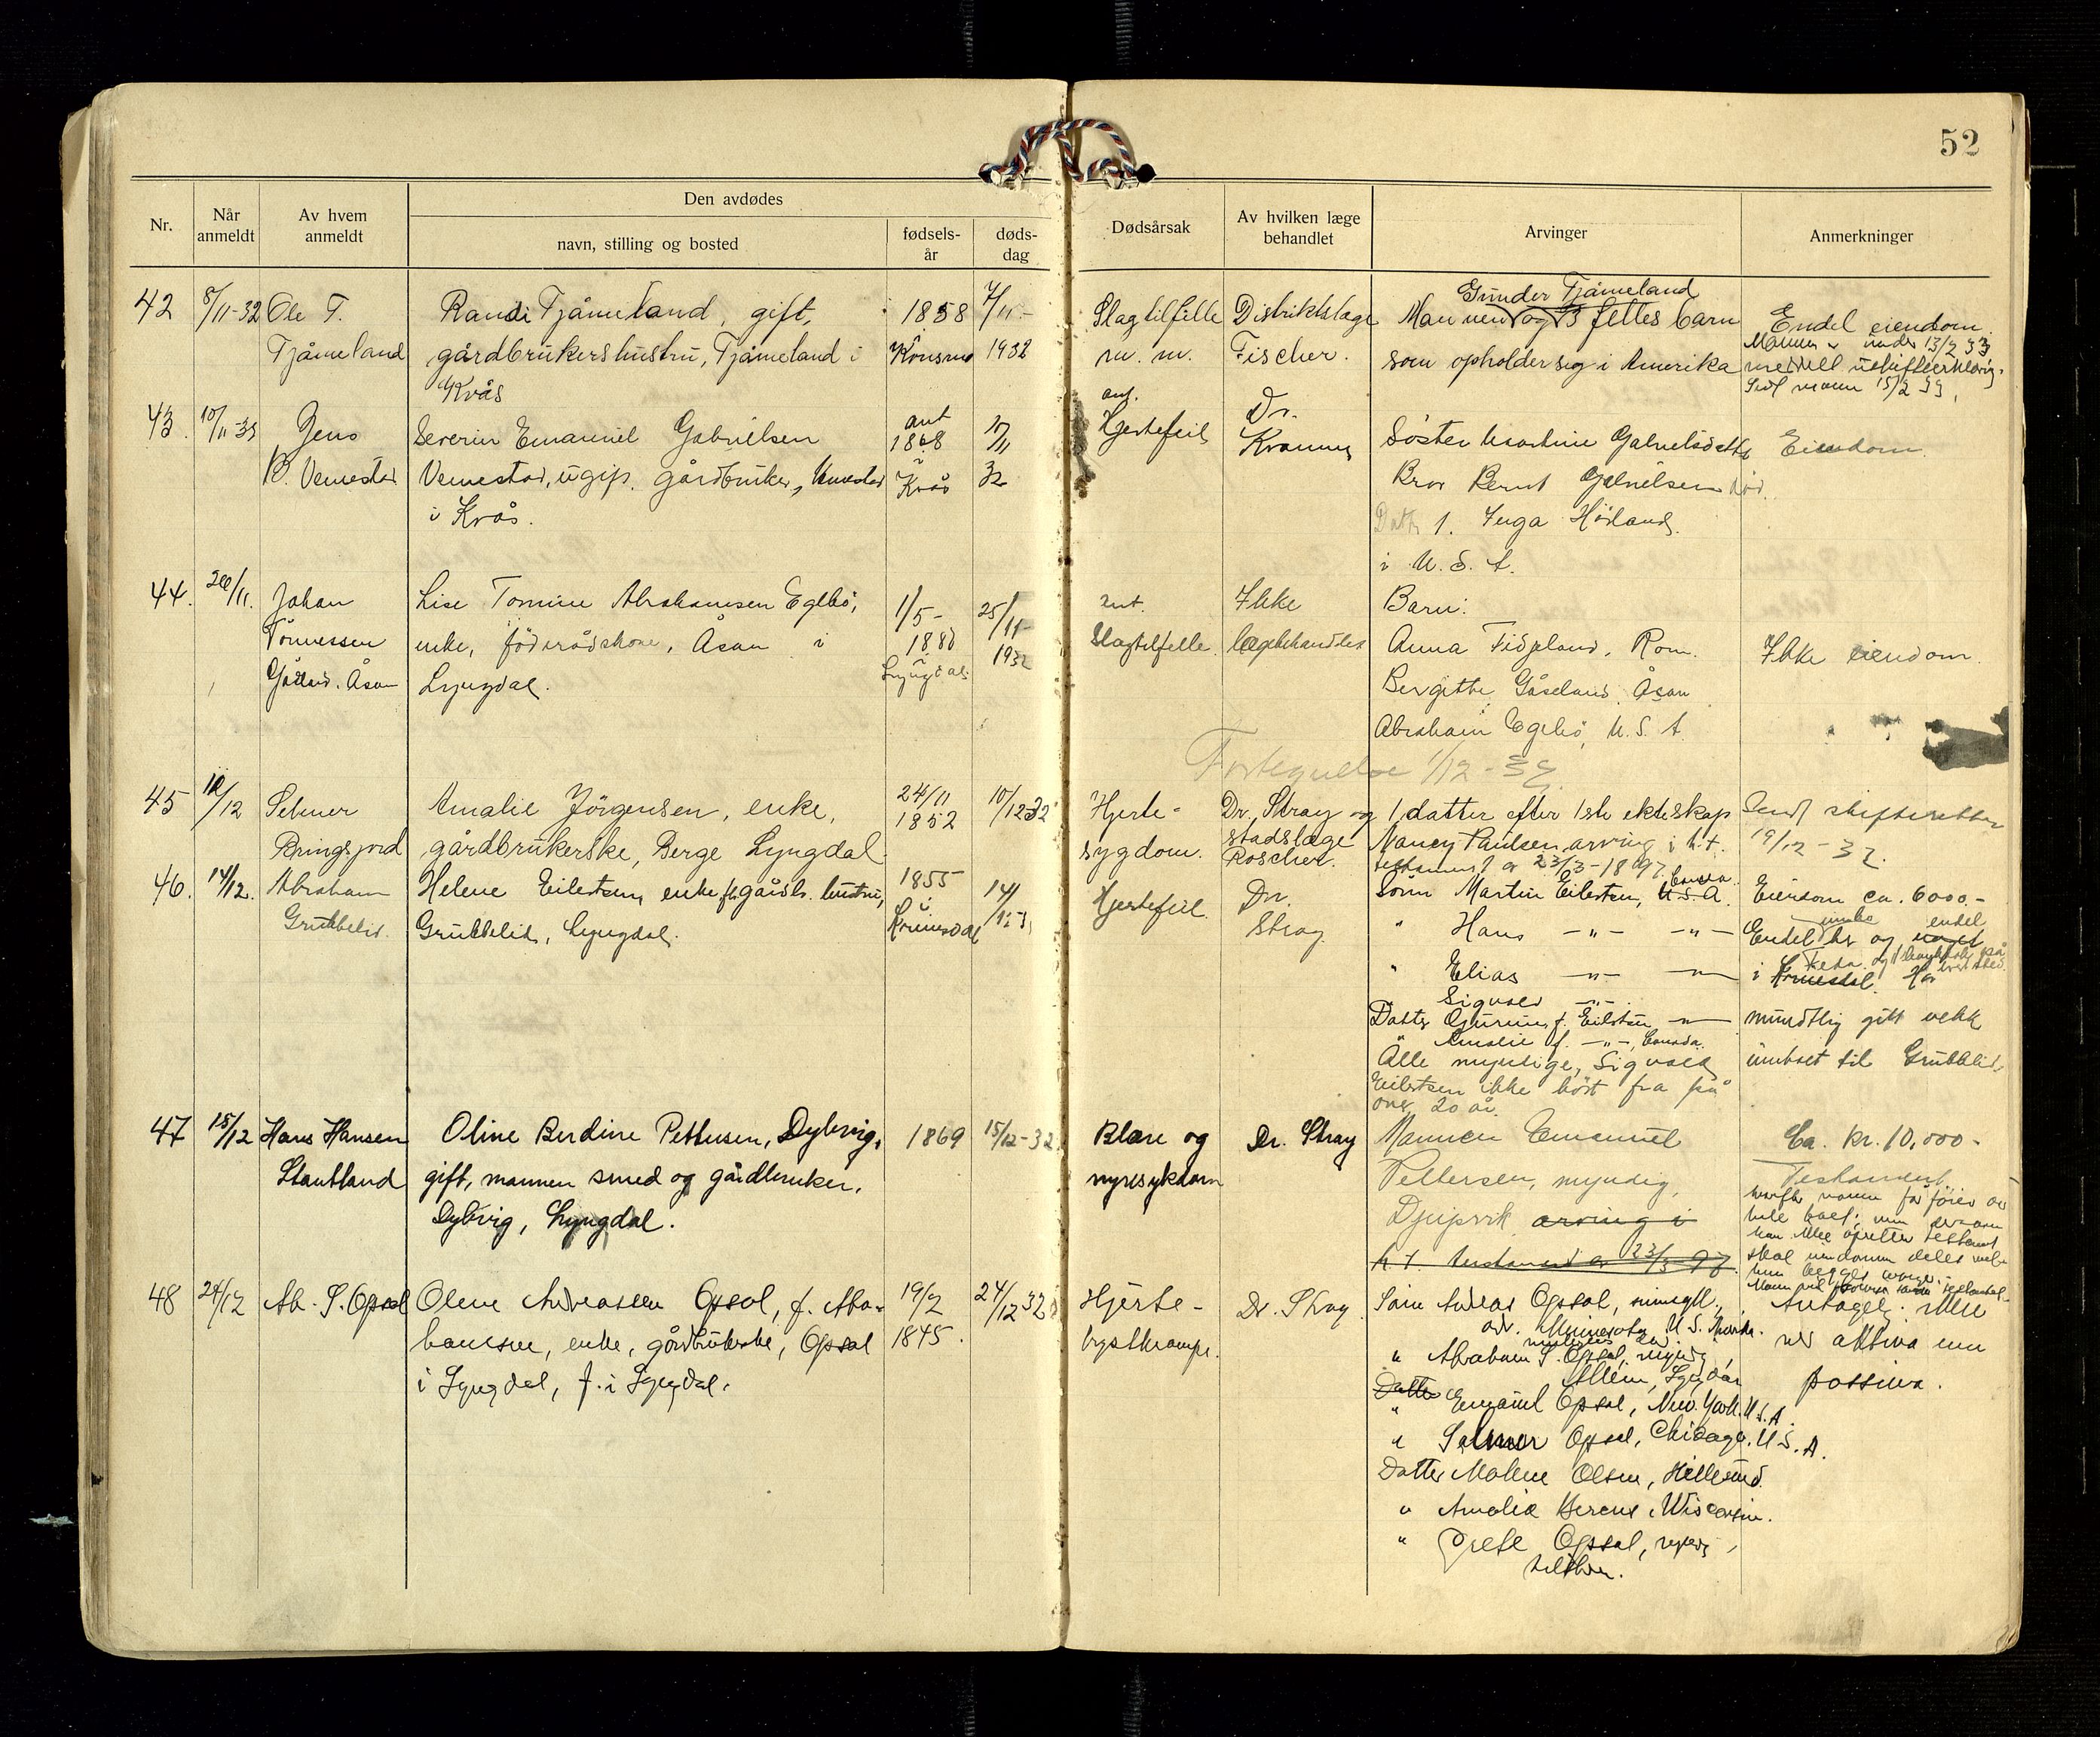 52
Nr.
Når anmeldt
Av hvem anmeldt
Den avdødes
navn, stilling og bosted
fødsels-år
døds-dag
Dødsårsak
Av hvilken læge behandlet
Arvinger
Anmerkninger
42
8/11-32
Ole T.
Tjåmeland
Randi Tjåmeland, gift,
gårdbrukershustru, Tjåmeland i
Kvås
1858
Konsmo
7/11-
1932
Slagtilfelle
m. m.
Distriktslæge
Fischer.
Gunder Tjåmeland
Mannen og 3 felles barn
som opholder sig i Amerika
Endel eiendom.
13/2 33
Sedl mann 15/2 33.
43.
10/11-32
Jens
B. Vemestad
Severin Emanuel Gabrielsen
Vemestad, ugift, gårdbruker, Vemestad
i Kvås.
ant
1868
i
Kvås
11
32
ant.
Hjertefeil
Dr.
Søster Martine Gabrielsdatter
Bror Bernt Gabrielsen død.
Datter 1. Inga Høiland
i U. S. A.
Eiendom.
44.
26/11.
Johan
Tønnessen
Gåseland. Åsan
Lise Tomine Abrahamsen Egebø,
enke, föderådskone, Åsan i
Lyngdal.
1/5-
1880
i
Lyngdal.
25/11-
1932
Ant.
Slagtilfelle.
Ikke
lægebehandlet
Barn:
Anna Fidjeland, Rom.
Bergitte Gåseland Åsan
Abraham Egebø, U. S. A.
Ikke eiendom.
Fortegnelse 1/12-32
45
12/12
Selmer
Ringsjord
Amalie Jörgensen, enke,
gårdbrukerske, Berge Lyngdal.
24/11
1852
10/12 32
Hjerte-
sygdom.
Dr. Stray og
stadslæge
Roscher.
1 datter efter 1ste ekteskap
Nancy Paulsen, arving i h.t.
testament av 23/3-1897.
Sendt skifteretten
19/12-32.
46.
14/12.
Abraham
Grubbelid.
Helene Eilertsen, enke, gårdbr. hustru,
Grubbelid, Lyngdal.
1855
i
14/12-3
Hjertefeil.
Dr.
Stray
Canada.
Sönn Martin Eilertsen, U.S.A.
" Hans -"- -"-
" Elias -"- -"-
Sigvald -"-
Datter f. Eilertsen -"-
" Amalie f. -"-, Canada.
Alle myndige, Sigvald
Eilertsen ikke hört fra på
over 20 år.
Eiendom ca. 6000.-
endel
Endel og
i Kvinesdal. Har
mundtlig gitt vekk
innboet til Grubbelid.
47
15/12
Hans Hansen
Stautland
Oline Berdine Pettersen, Dybvig,
gift, mannen smed og gårdbruker,
Dybvig, Lyngdal.
1869
15/12-32
Blære og
nyresykdom
Dr. Stray
Mannen Emanuel
Pettersen, myndig,
Djupvik arving i
h.t. testament av 23/3-97.
Ca. kr. 10,000-
Testament
48
24/12
Ab. S. Opsal
Olene Andreassen Opsal, f. Abra-
hamsen, enke, gårdbrukerske, Opsal
i Lyngdal, f. i Lyngdal.
19/2
1845.
24/12 32
Hjerte-
krampe.
Dr. Stray.
Sönn Andreas Opsal,
adr. Minnesota U. S. Amerika.
" Abraham S. Opsal, myndig,
Lyngdal
Datter
" Emanuel Opsal, New York. U.S.A.
" Selmer Opsal, Chicago. U.S.A.
Datter Malene Olsen, Hillesund.
" Amalia Berens, Wisconsin.
" Grete Opsal, myndig,
Antagelig mere
aktiva enn
passiva.